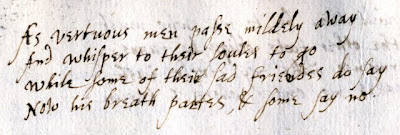 As vertuous men passe mildely away
And whisper to their soules to go
While some of their sad friendes do say
Now his breath partes, & some say no.